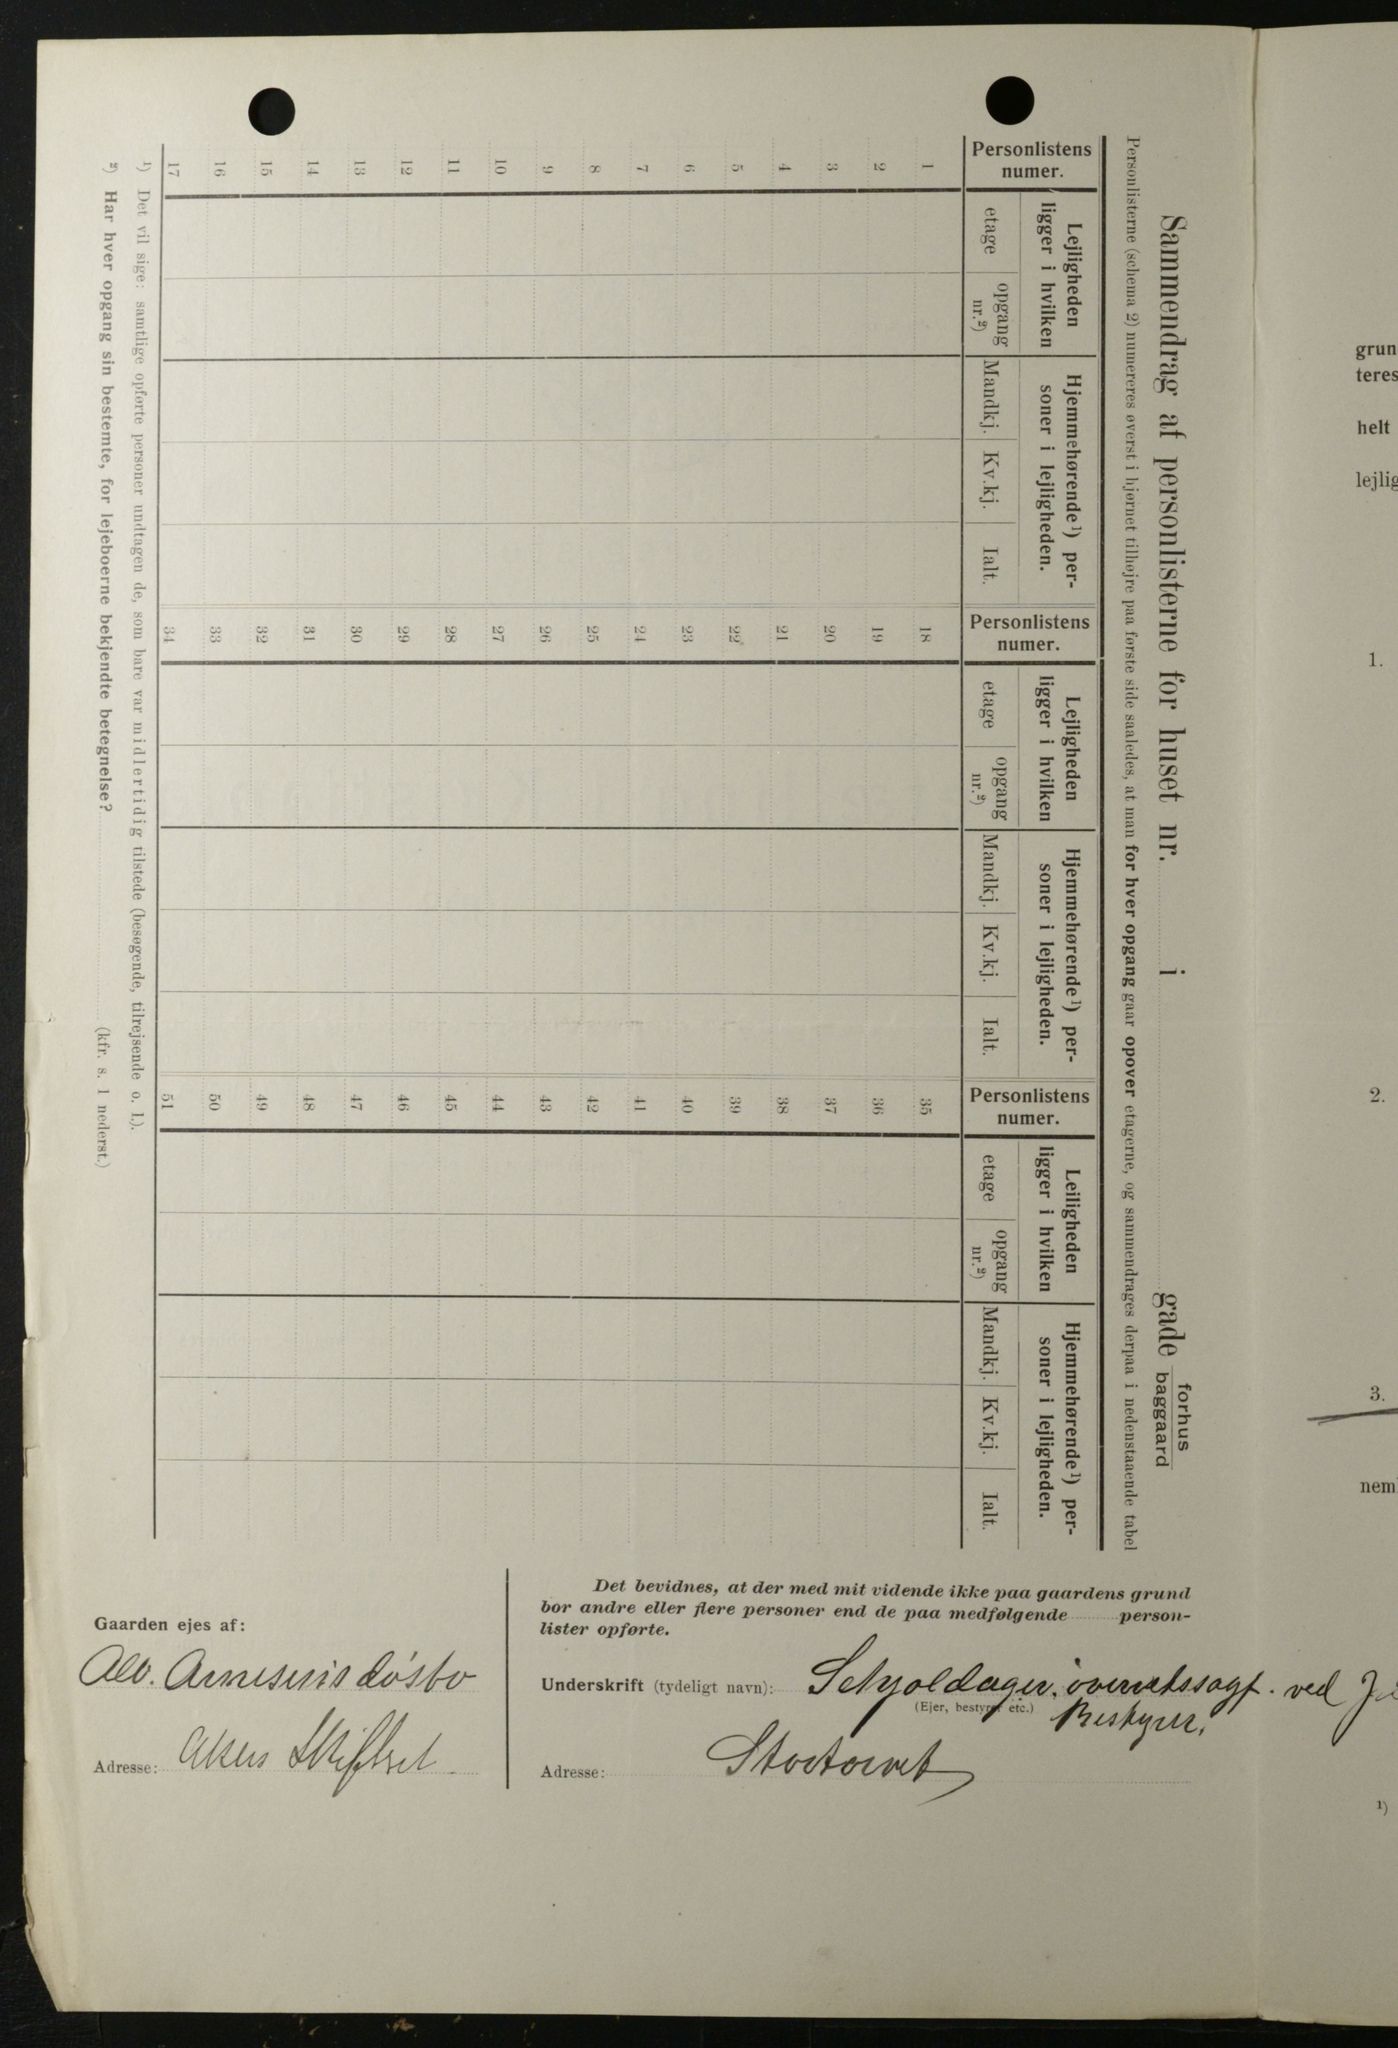 Sammendrag af personlisterne for huset nr. i gade forhus
baggaard
Personlisterne (schema 2) numereres øverst i hjørnet tilhøjre paa første side saaledes, at man for hver opgang gaar opover etagerne, og sammendrages derpaa i nedenstaaende tabel
Personlistens
numer.
Lejligheden
ligger i hvilken
etage
opgang
nr.²)
Hjemmehørende¹) per-
soner i lejligheden.
Mandkj.
Kv.kj.
Ialt.
Personlistens
numer.
Lejligheden
ligger i hvilken
etage
opgang
nr.²)
Hjemmehørende¹) per-
soner i lejligheden.
Mandkj.
Kv.kj.
Ialt.
Personlistens
numer.
Leiligheden
ligger i hvilken
etage
opgang
nr.²)
Hjemmehørende¹) per-
soner i lejligheden.
Mandkj.
Kv.kj.
Ialt.
1 18 35
2 19 36
3 20 37
4 21 38
5 22 39
6 23 40
7 24 41
8 25 42
9 26 43
10 27 44
11 28 45
12 29 46
13 30 47
14 31 48
15 32 49
16 33 50
17 34 51
¹) Det vil sige: samtlige opførte personer undtagen de, som bare var midlertidig tilstede (besøgende, tilrejsende o. l.).
²) Har hver opgang sin bestemte, for lejeboerne bekjendte betegnelse? (kfr. s. 1 nederst.)
Gaarden ejes af:
Adresse: Akers Skifteret
Det bevidnes, at der med mit vidende ikke paa gaardens grund
bor andre eller flere personer end de paa medfølgende person-
lister opførte.
Underskrift (tydeligt navn): ved
(Ejer, bestyrer etc.)
Bestyrer.
Adresse: Stortorvet
grun
teres
helt
lejlig
1.
2.
3.
nem
¹)